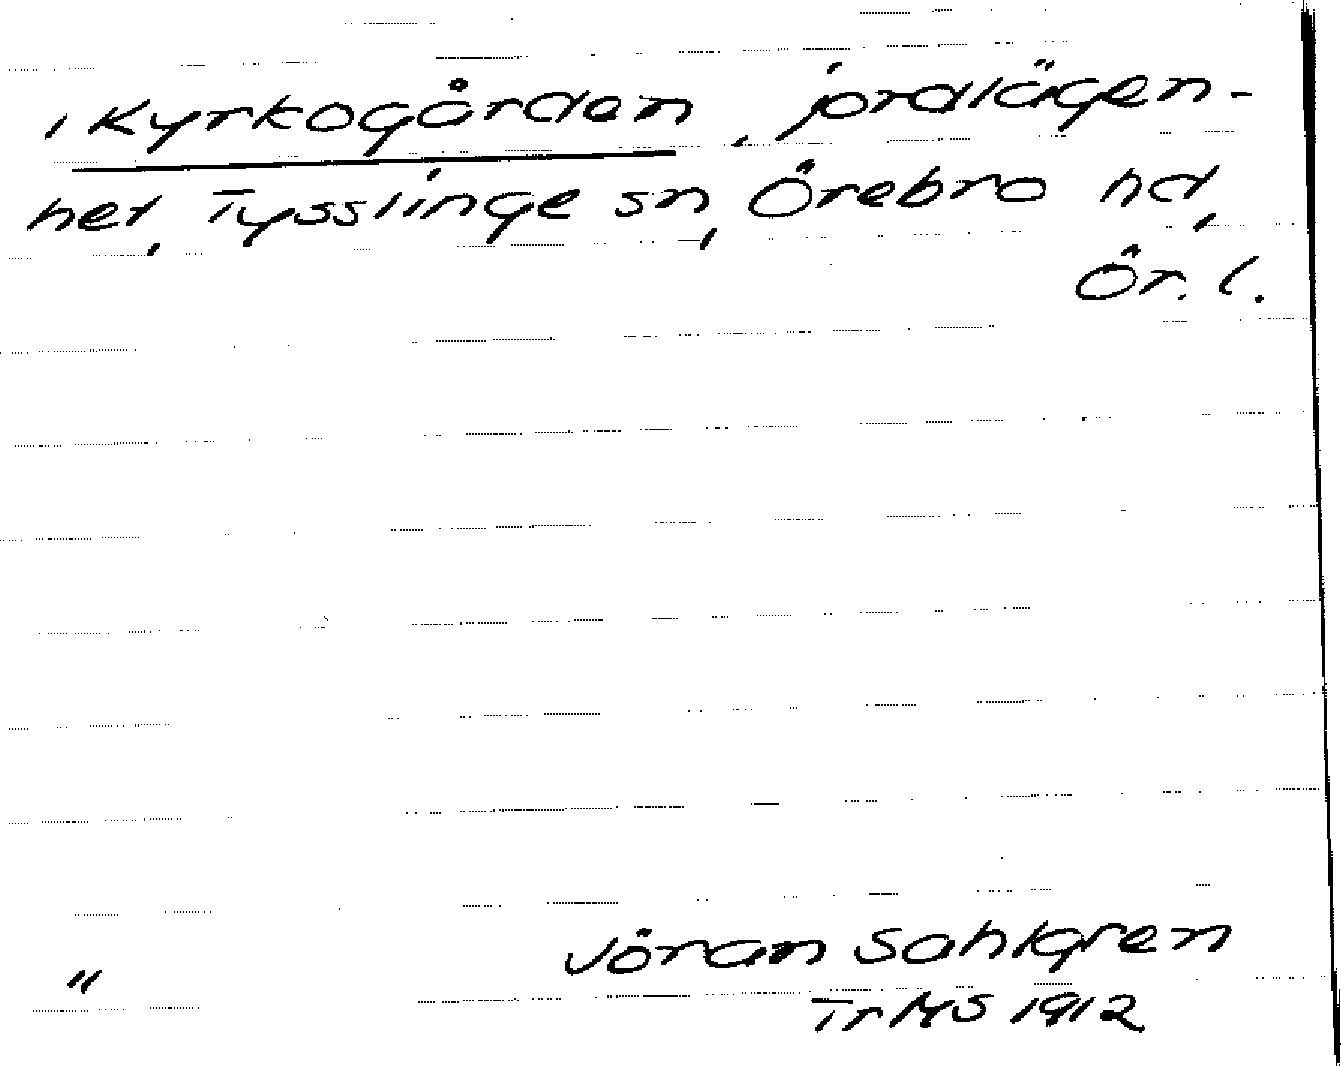 , Kyrkogården, jordlägen-
het, Tysslinge sn, Örebro hd,
Ör. l.
" Jöran Sahlgren
Tr MS 1912